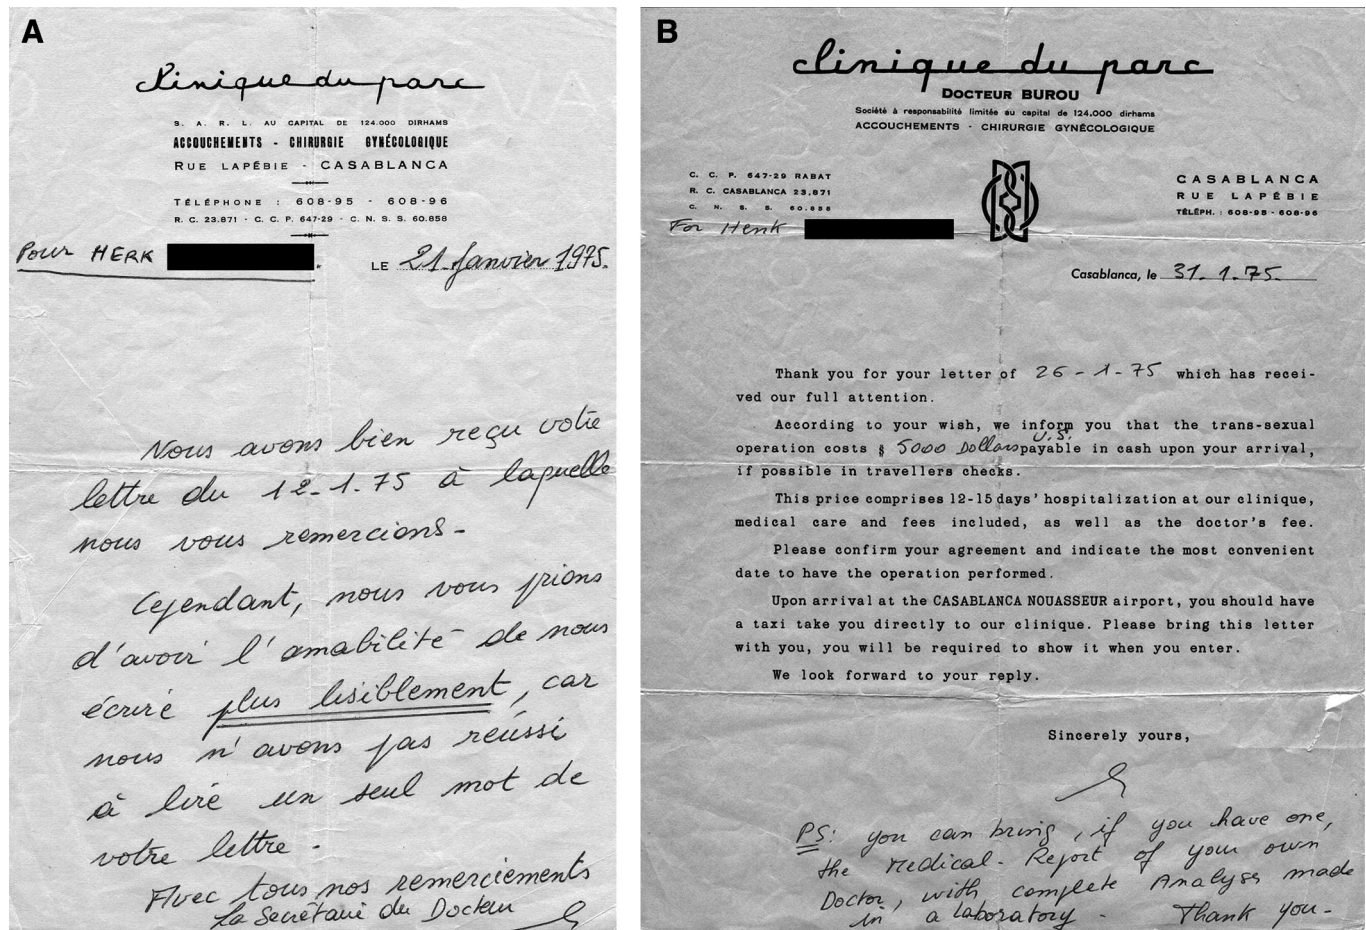 A
clinique du parc
S. A. R. L. AU CAPITAL DE 124.000 DIRHAMS
ACCOUCHEMENTS - CHIRURGIE GYNÉCOLOGIQUE
RUE LAPÉBIE - CASABLANCA
TÉLÉPHONE : 608-95 - 608-96
R. C. 23.871 - C. C. P. 647-29 - C. N. S. S. 60.858
Pour HERK
LE 21 Janvier 1975.
Nous avons bien reçu votre
lettre du 12-1.75 à laquelle
nous vous remercions-
Cependant, nous vous prions
d'avoir l'amabilité de nous
écrire plus lisiblement, car
nous n'avons pas réussi
à lire un seul mot de
votre lettre.
Avec tous nos remerciements
La Secrétaire du Docteur
B
clinique du parc
DOCTEUR BUROU
Société à responsabilité limitée au capital de 124.000 dirhams
ACCOUCHEMENTS - CHIRURGIE GYNÉCOLOGIQUE
C. C. P. 647-29 RABAT
R. C. CASABLANCA 23.871
C. N. S. S. 60.858
CASABLANCA
RUE LAPÉBIE
TÉLÉPH. : 608-95 - 608-96
For Henk
Casablanca, le 31. 1. 75.
Thank you for your letter of 26-1-75 which has recei-
ved our full attention.
According to your wish, we inform you that the trans-sexual
operation costs $ 5000 Dollars U.S. payable in cash upon your arrival,
if possible in travellers checks.
This price comprises 12-15 days' hospitalization at our clinique,
medical care and fees included, as well as the doctor's fee.
Please confirm your agreement and indicate the most convenient
date to have the operation performed.
Upon arrival at the CASABLANCA NOUASSEUR airport, you should have
a taxi take you directly to our clinique. Please bring this letter
with you, you will be required to show it when you enter.
We look forward to your reply.
Sincerely yours,
PS: you can bring, if you have one,
the Medical-Report of your own
Doctor, with complete Analyses made
in a laboratory - Thank you-